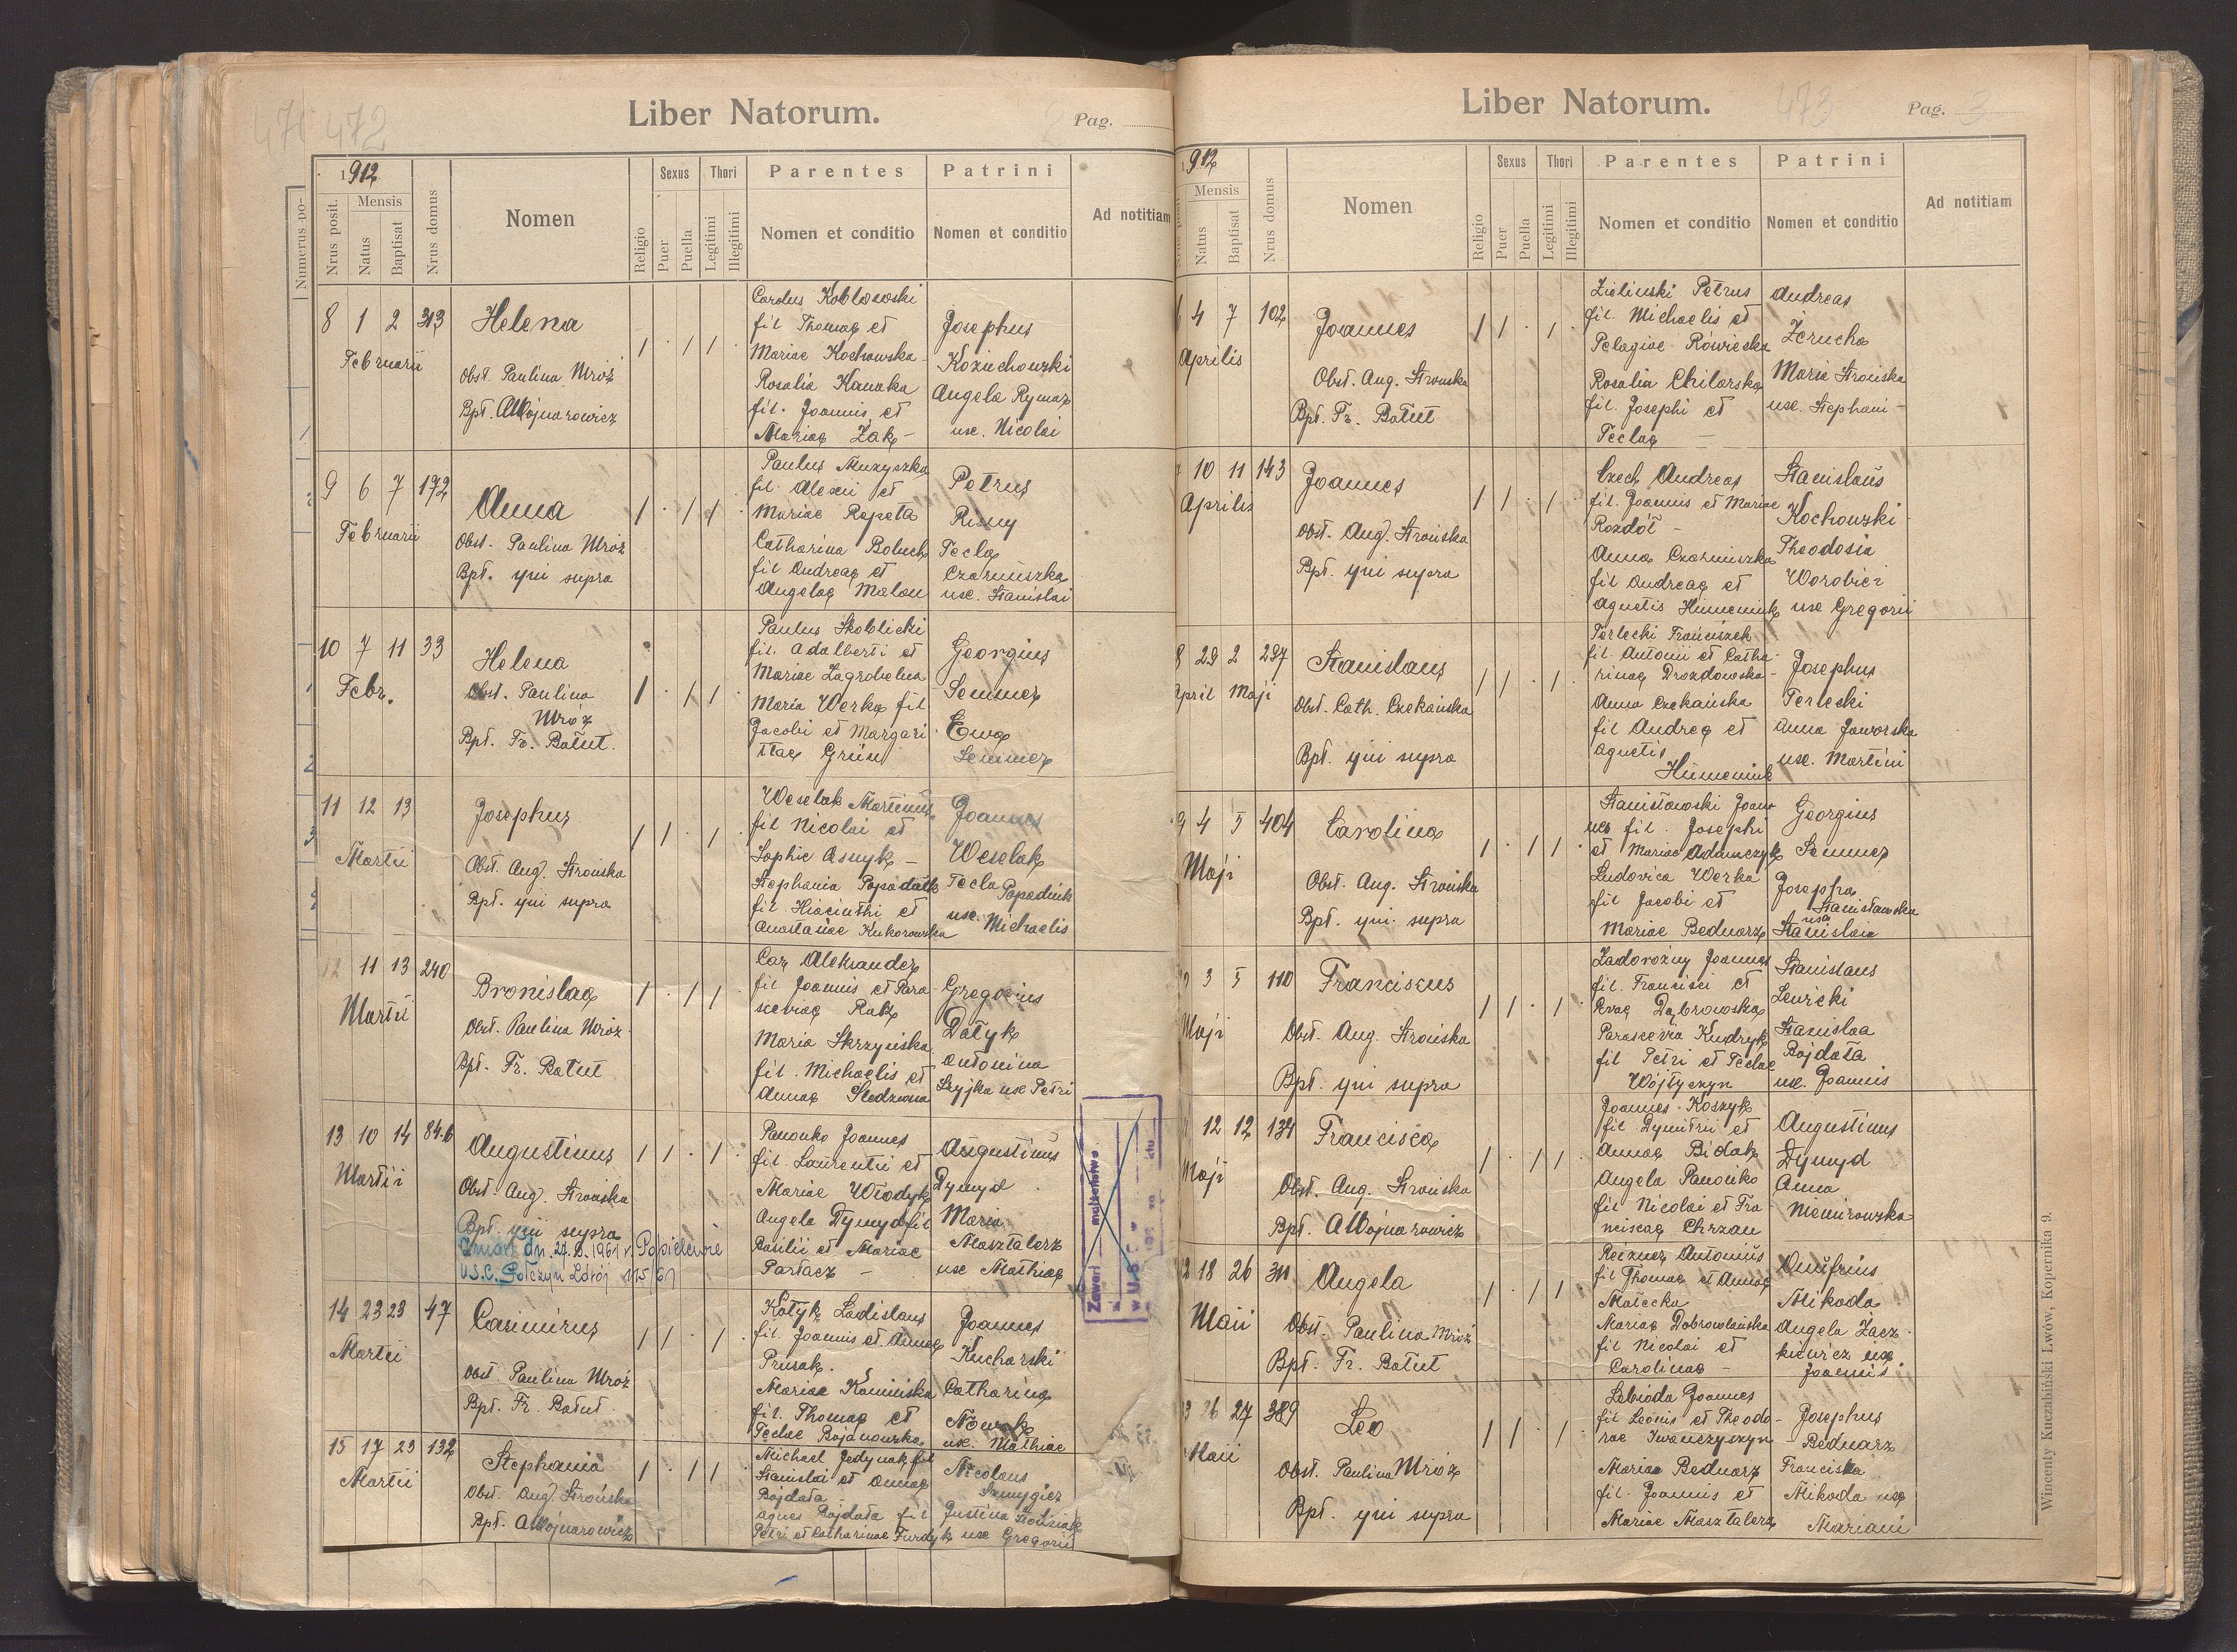 471 472
Liber Natorum.
Pag.
1912
Numerus po-
Nrus posit.
Mensis
Natus
Baptisat
Nrus domus
Nomen
Religio
Sexus
Puer
Puella
Thori
Legitimi
Illegitimi
Parentes
Nomen et conditio
Patrini
Nomen et conditio
Ad notitiam
8 1 2 313
Februarii
Helena
Obst. Paulina Mróz
Bpt. AWojnarowicz
Carolus Koblososki
fil Thomae et
Mariae Kochowska
Rosalia Kanaka
fil. Joannis et
Mariae Żak -
Josephus
Kozuchowski
Angela Rymarz
uxe. Nicolai
9 6 7 172
Februarii
Anna
Obst. Paulina Mróz
Bpt. qui supra
Paulus Muzyczka
fil. Alexii et
Mariae Repeta
Catharina Boluch
fil Andreae et
Angelae Malon
Petrus
Risny
Tecla
Czarniuszka
uxe. Stanislai
10 7 11 33
Febr.
Helena
Obst. Paulina
Mróz
Bpt. Fr. Bałut.
Paulus Skoblicki
fil. Adalberti et
Mariae Zagrobelna
Maria Werka fil
Jacobi et Margari
ttae Grün
Georgius
Semmer
Ewa
Semmer
11 12 13
Martii
Josephus
Obst. Aug. Strońska
Bpt. qui supra
Weselak Martinus
fil Nicolai et
Sophie Asnyk -
Stephania Popadiuk
fil. Hiacinthi et
Anastasiae Kukorowska
Joannes
Weselak
Tecla Popadiuk
uxe. Michaelis
12 11 13 240
Martii
Bronislaa
Obst. Paulina Mróz
Bpt. Fr. Bałut
Car Aleksander
fil Joannis et Para
sceviae Rak
Maria Skrzyńska
fil. Michaelis et
Annae Śledziona
Gregorius
Dałyk
Antonina
Szyjka uxe Petri
13 10 14 84.b
Martii
Augustinus
Obst. Aug. Strońska
Bpt. qui supra
Zmarł dn. 27.8.1961 r. Popielewie
U.S.C. Połczyn Zdrój 115/61
Panońko Joannes
fil. Laurentii et
Mariae Włodyka
Angela Dymyd fil
Basilii et Mariae
Partacz -
Augustinus
Dymyd
Maria
Masztalerz
uxe Mathiae
Zawarł małżeństwo
w U.S.C.
14 23 23 47
Martii
Casimirus
Obst. Paulina Mróz
Bpt. Fr. Bałut.
Kotyk Ladislaus
fil. Joannis et Annae
Prusak.
Mariae Kamińska
fil. Thomae et
Teclae Bojanowska
Joannes
Kucharski
Catharina
Nowak
uxe. Mathiae
15 17 23 132
Martii
Stephania
Obst. Aug. Strońska
Bpt. AWojnarowicz
Michael Jedynak fil
Stanislai et Annae
Bojdała
Agnes Bojdała fil
Petri et Catharinae Furdyk
Nicolaus
Szmygier
Justina
uxe Gregorii
Liber Natorum.
473
Pag. 3
1912
Mensis
Natus
Baptisat
Nrus domus
Nomen
Religio
Sexus
Puer
Puella
Thori
Legitimi
Illegitimi
Parentes
Nomen et conditio
Patrini
Nomen et conditio
Ad notitiam
6 4 7 102
Aprilis
Joannes
Obst. Aug. Strońska
Bpt. Fr. Bałut
Zieliński Petrus
fil. Michaelis et
Pelagiae Rówieska
Rosalia Chilarska
fil. Josephi et
Teclae -
Andreas
Żerucha
Maria Strońska
uxe. Stephani -
7 10 11 143
Aprilis
Joannes
Obst. Aug. Strońska
Bpt. qui supra
Czech Andreas
fil. Joannis et Mariae
Rozdół -
Anna Czarniuszka
fil Andreae et
Agnetis Humeniuk
Stanislaus
Kochowski
Theodosia
Worobiec
uxe Gregorii
8 29 2 297
April Maji
Stanislaus
Obst. Cath. Czekańska
Bpt. qui supra
Terlecki Franciszek
fil. Antonii et Catha
rinae Drozdowska -
Anna Czekańska
fil Andreae et
Agnetis
Humeniuk
Josephus
Terlecki
Anna Jaworska
uxe. Martini
9 4 5 404
Maji
Carolina
Obst. Aug. Strońska
Bpt. qui supra
Stanisławski Joan
nes fil. Josephi
et Mariae Adamczyk
Ludovica Werka
fil Jacobi et
Mariae Bednarz
Georgius
Semmer
Josepha
Stanisławska
uxe
Stanislai
10 3 5 110
Maji
Franciscus
Obst. Aug. Strońska
Bpt. qui supra
Zadorożny Joannes
fil. Francisci et
Evae Dąbrowska
Parascevia Kudryk
fil Petri et Teclae
Wójtyczyn
Stanislaus
Lewicki
Stanislaa
Bojdała
uxe. Joannis
12 12 134
Maji
Francisca
Obst. Aug. Strońska
Bpt. AWojnarowicz
Joannes Koszyk
fil Dymitrii et
Annae Bidak
Angela Panońko
fil Nicolai et Fra
nciscae Chrzan
Augustinus
Dymyd
Anna
Niemirowska
12 18 26 311
Maii
Angela
Obst. Paulina Mróz
Bpt. Fr. Bałut
Reczner Antonius
fil Thomae et Annae
Małecka
Mariae Dobrowlańska
fil Nicolai et
Carolinae -
Onufrius
Mikoda
Angela Zacz
kiewicz uxe
Joannis
13 26 27 389
Maii
Leo
Obst. Paulina Mróz
Bpt. qui supra
Lebioda Joannes
fil Leonis et Theodo
rae Iwańczyszyn
Mariae Bednarz
fil. Joannis et
Mariae Masztalerz
Josephus
Bednarz
Franciska
Mikoda uxe
Mariani
Wincenty Kuczabiński Lwów, Kopernika 9.